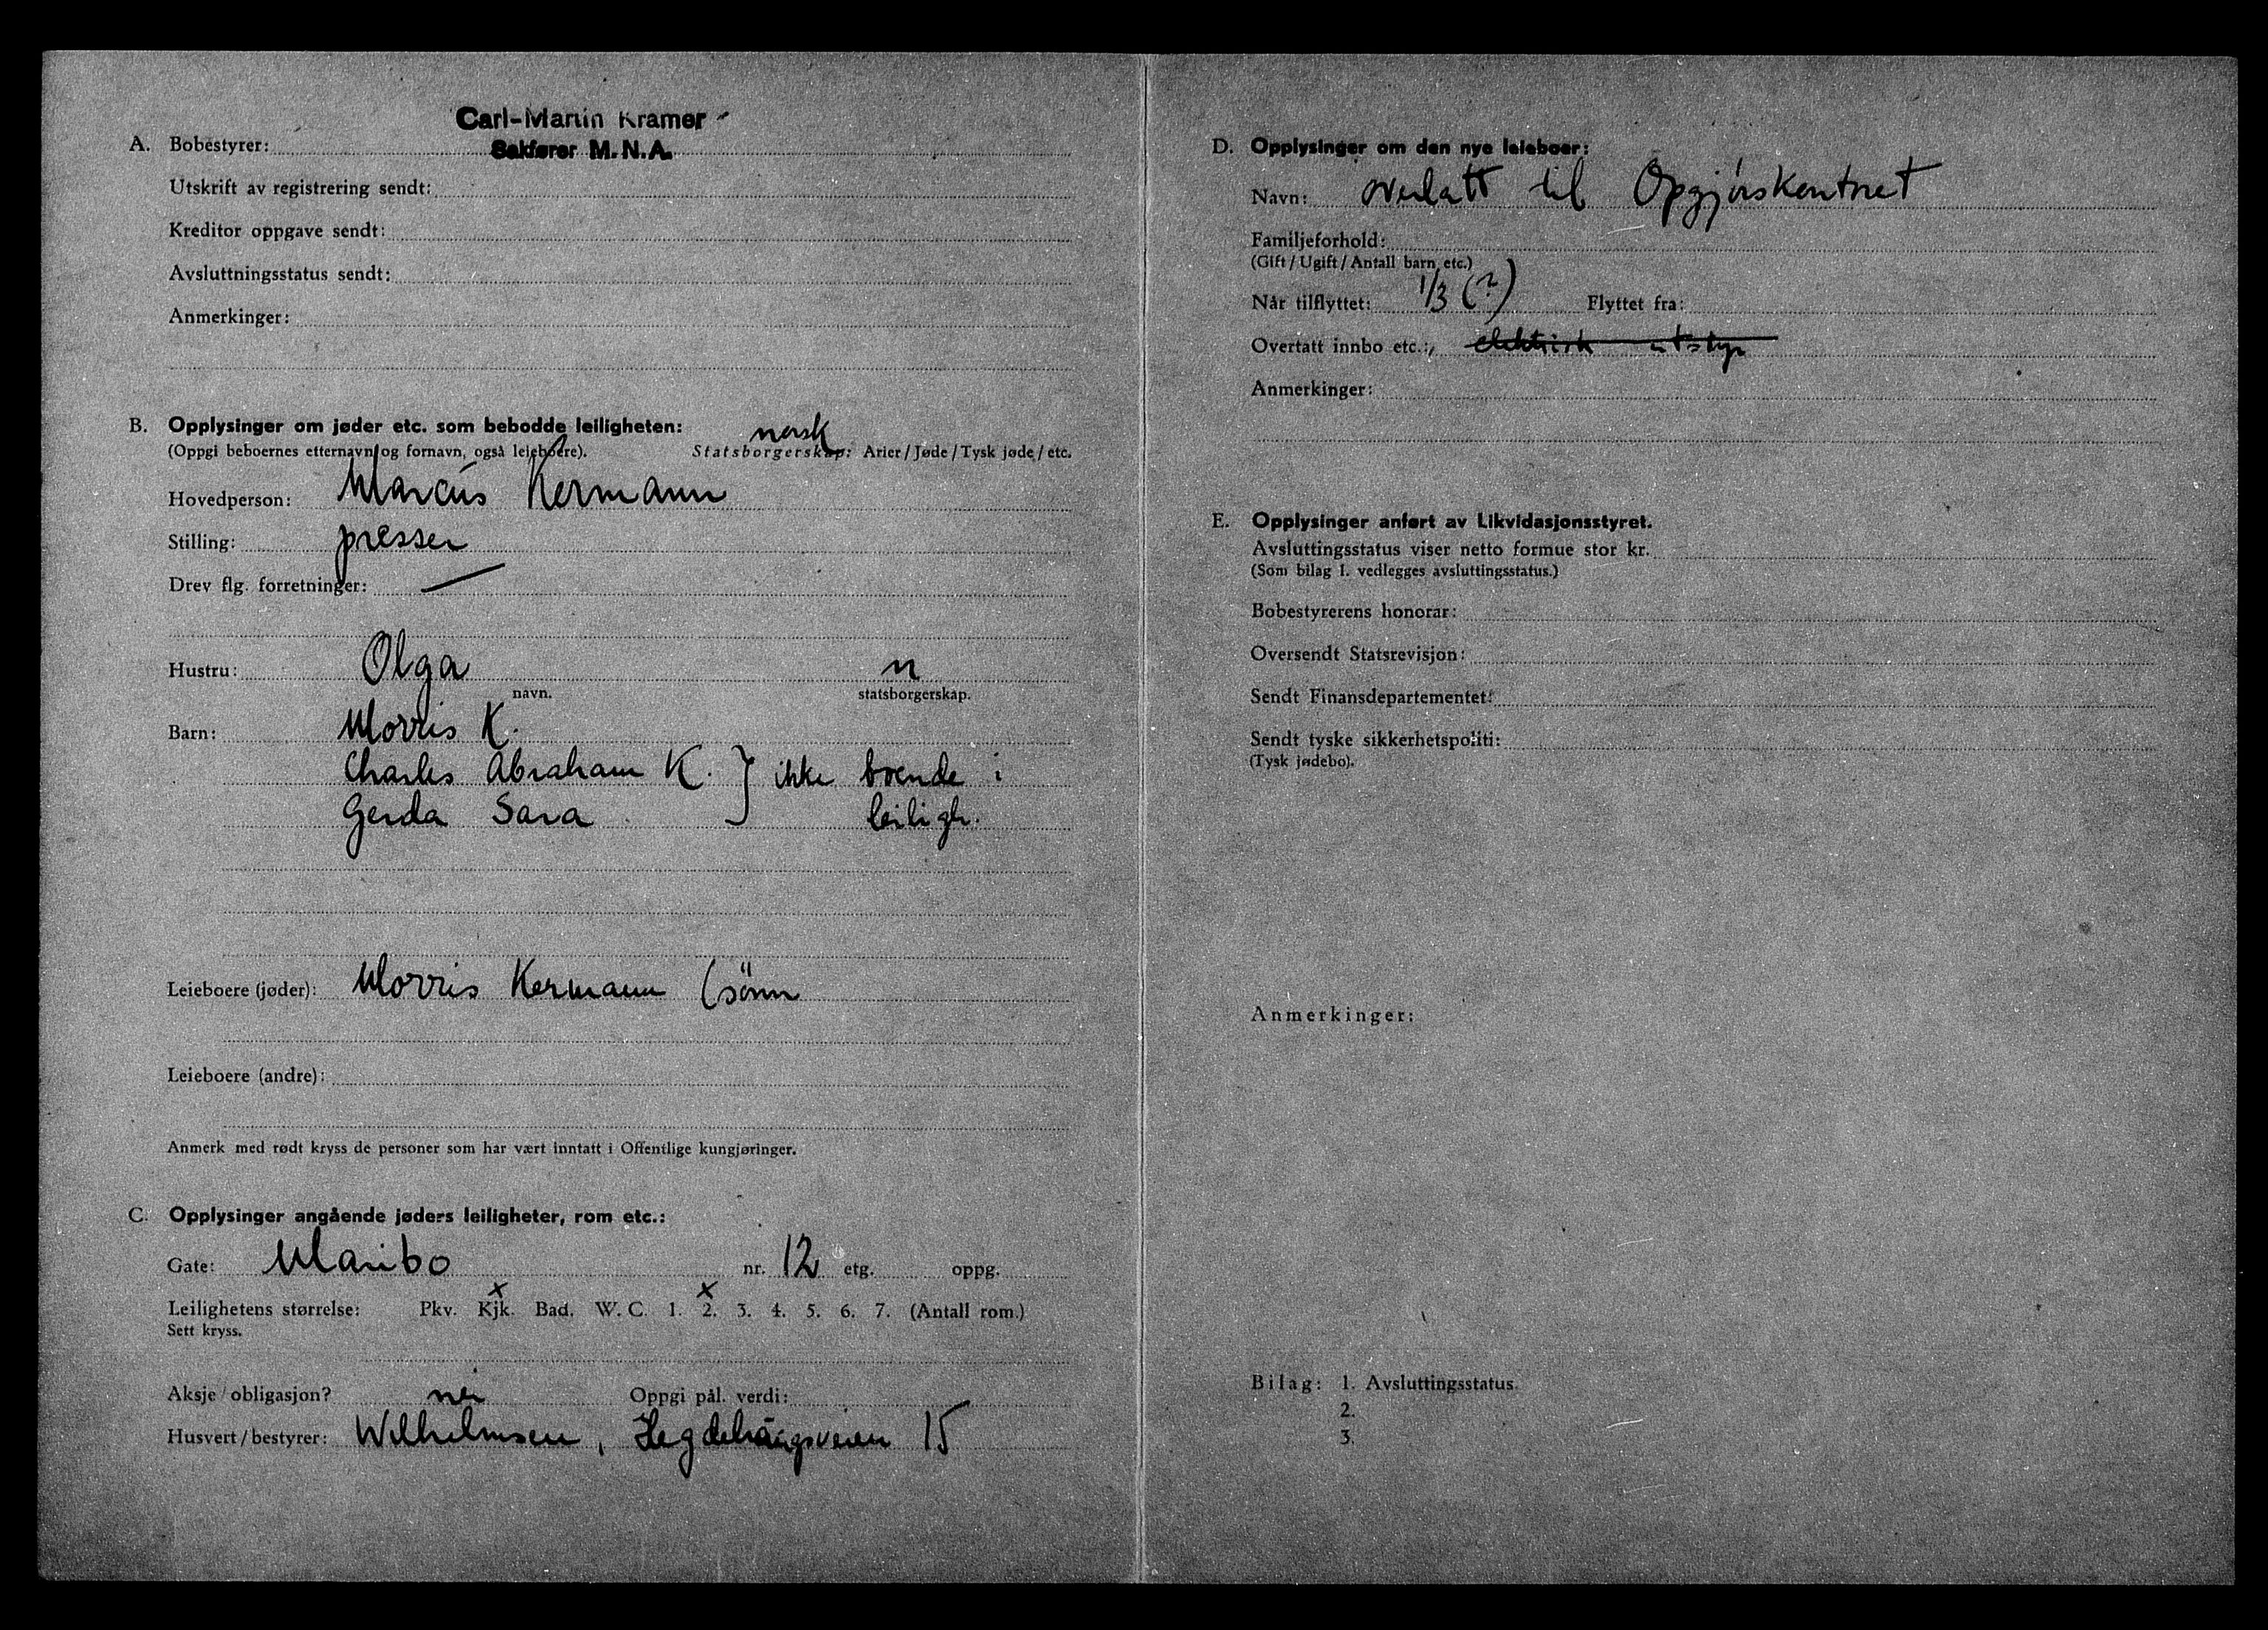 Carl-Martin Kramer
A. Bobestyrer: Sakfører M.N.A.
Utskrift av registrering sendt:
Kreditor oppgave sendt:
Avsluttningsstatus sendt:
Anmerkinger:
B. Opplysinger om jøder etc. som bebodde leiligheten:
norsk
(Oppgi beboernes etternavn og fornavn, også leieboere). Statsborgerskap: Arier / Jøde / Tysk jøde / etc.
Hovedperson: Marcus Kermann
Stilling: presser
Drev flg. forretninger: —
Hustru: Olga n
navn. statsborgerskap.
Barn: Morris K.
Charles Abraham K. } ikke boende i
Gerda Sara leiligh.
Leieboere (jøder): Morris Kermann (sönn
Leieboere (andre):
Anmerk med rødt kryss de personer som har vært inntatt i Offentlige kungjøringer.
C. Opplysinger angående jøders leiligheter, rom etc.:
Gate: Maribo nr. 12 etg. oppg.
x x
Leilighetens størrelse: Pkv. Kjk. Bad. W. C. 1. 2. 3. 4. 5. 6. 7. (Antall rom.)
Sett kryss.
Aksje / obligasjon? nei Oppgi pål. verdi:
Husvert / bestyrer: Wilhelmsen, Hegdehaugsveien 15
D. Opplysinger om den nye leieboer:
Navn: overlatt til Opgjörskontoret
Familjeforhold:
(Gift / Ugift / Antall barn etc.)
Når tilflyttet: 1/3 (?) Flyttet fra:
Overtatt innbo etc.: elektrisk utstyr
Anmerkinger:
E. Opplysinger anført av Likvidasjonsstyret.
Avsluttingsstatus viser netto formue stor kr.
(Som bilag 1. vedlegges avsluttingsstatus.)
Bobestyrerens honorar:
Oversendt Statsrevisjon:
Sendt Finansdepartementet:
Sendt tyske sikkerhetspoliti:
(Tysk jødebo).
Anmerkinger:
Bilag: 1. Avsluttingsstatus.
2.
3.